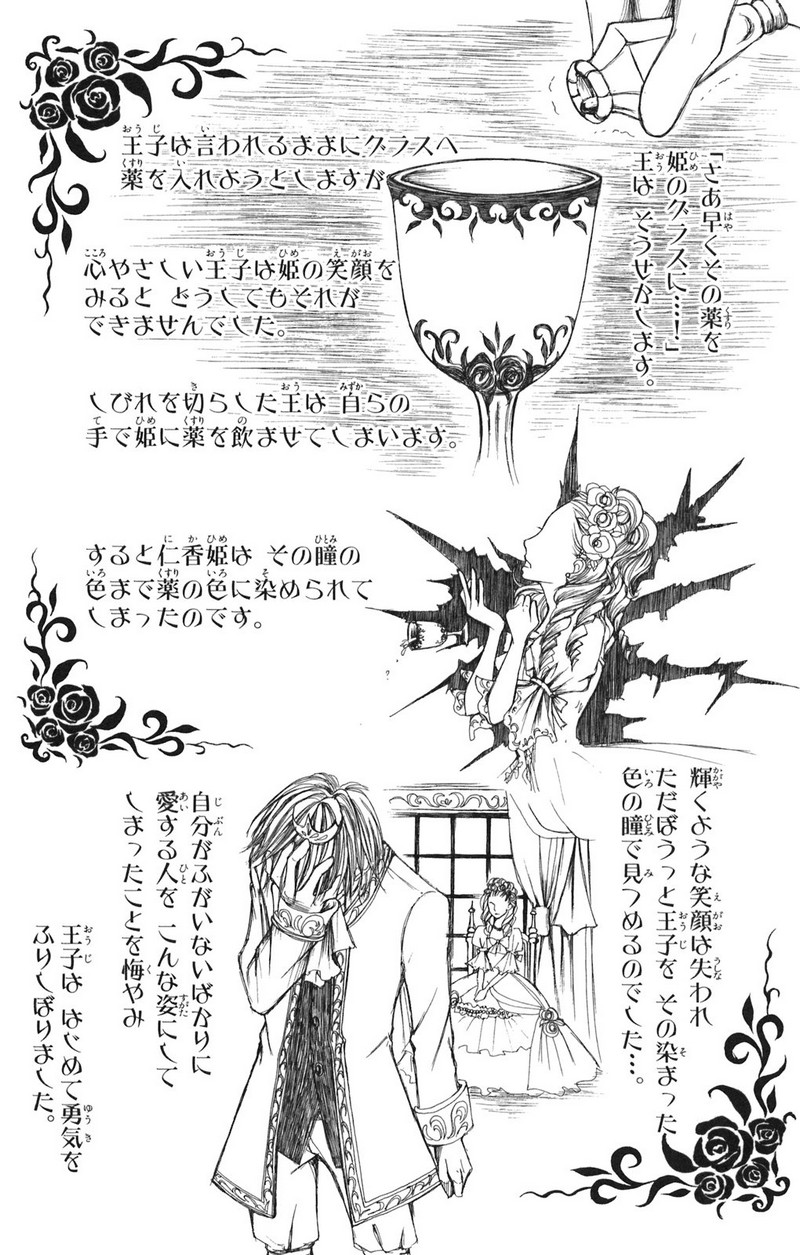 「さあ早くその薬を
姫のグラスに…！」
王は そうせかします。
王子は言われるままにグラスへ
薬を入れようとしますが
心やさしい王子は姫の笑顔を
みると どうしてもそれが
できませんでした。
しびれを切らした王は 自らの
手で姫に薬を飲ませてしまいます。
すると仁香姫は その瞳の
色まで薬の色に染められて
しまったのです。
輝くような笑顔は失われ
ただぼうっと王子を その染まった
色の瞳で見つめるのでした…。
自分がふがいないばかりに
愛する人を こんな姿にして
しまったことを悔やみ
王子は はじめて勇気を
ふりしぼりました。